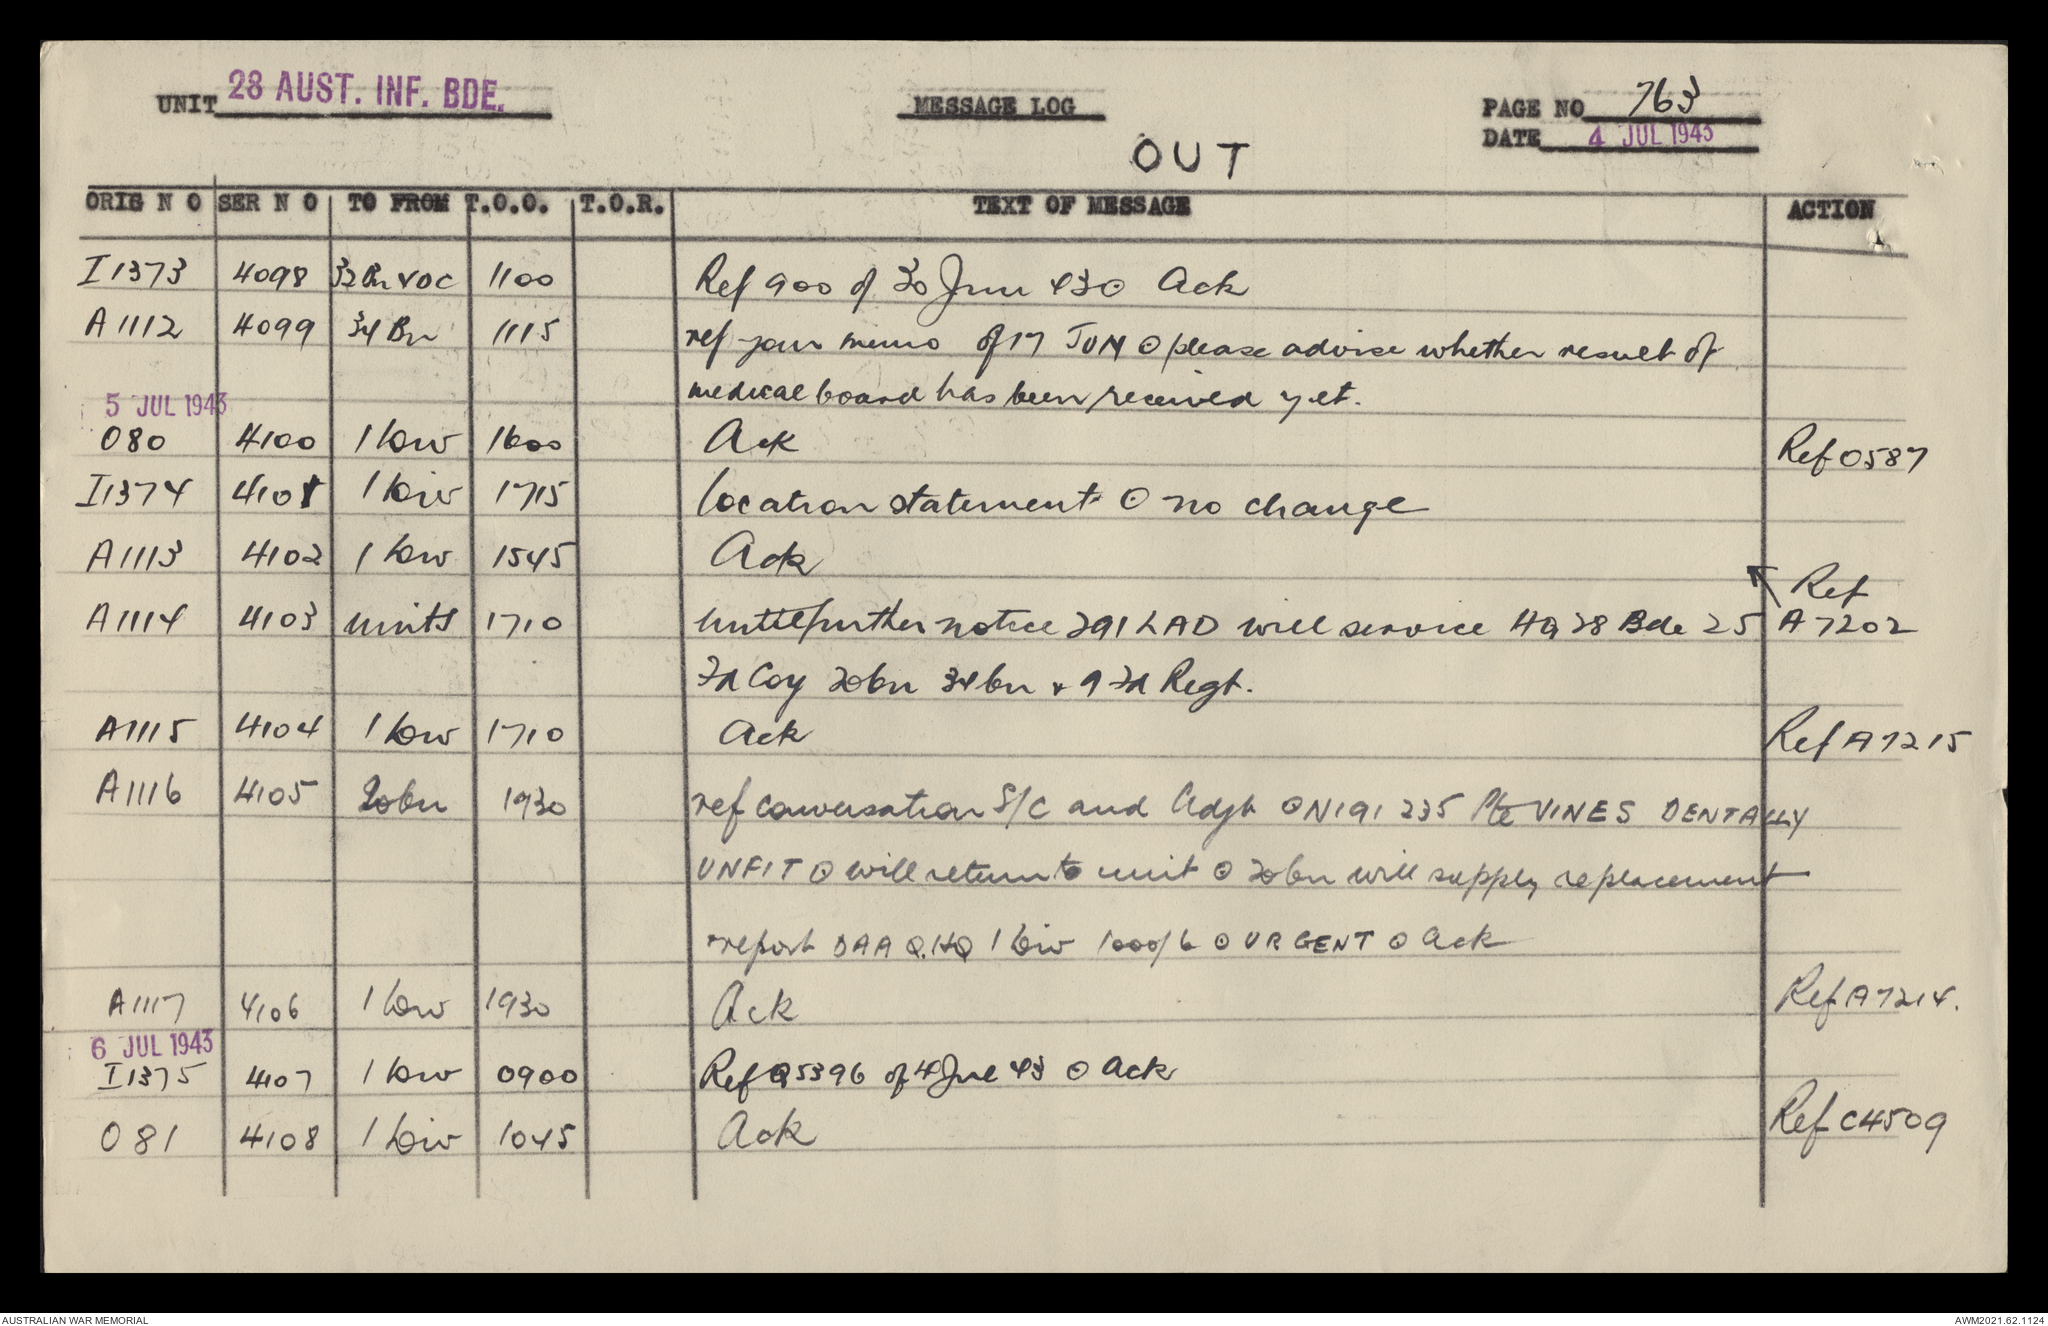 UNIT 28 AUST. INF. BDE. MESSAGE LOG PAGE NO 763
DATE 4 JUL 1943
OUT
ORIG NO SER NO TO FROM T.O.O. T.O.R. TEXT OF MESSAGE ACTION
I1373 4098 32 Bn VDC 1100 Ref 900 of 30 Jun 43 ⊙ Ack
A1112 4099 34 Bn 1115 ref your memo of 17 JUN ⊙ please advise whether result of
medical board has been received yet.
5 JUL 1943
080 4100 1 Div 1600 Ack Ref 0587
I1374 4101 1 Div 1715 location statement ⊙ no change
A1113 4102 1 Div 1545 Ack Ref
A1114 4103 units 1710 until further notice 291 LAD will service HQ 28 Bde 25 A7202
Fd Coy 20bn 34bn & 9 Fd Regt.
A1115 4104 1 Div 1710 Ack Ref A7215
A1116 4105 20bn 1930 ref conversation S/C and Adjt ⊙ N191235 Pte VINES DENTALLY
UNFIT ⊙ will return to unit ⊙ 20bn will supply replacement
report DAAQ.HQ 1 Div 1000/6 ⊙ URGENT ⊙ Ack
A1117 4106 1 Div 1930 Ack Ref A7214.
6 JUL 1943
I1375 4107 1 Div 0900 Ref Q5396 of 4 Jul 43 ⊙ Ack
081 4108 1 Div 1045 Ack Ref C4509
AUSTRALIAN WAR MEMORIAL AWM2021.62.1124